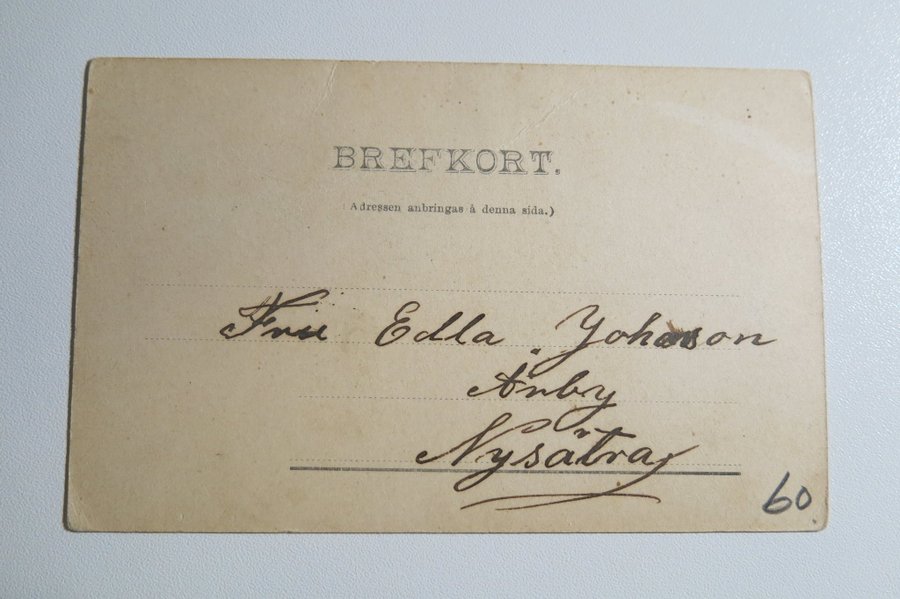 BREFKORT.
(Adressen anbringas å denna sida.)
Fru Edla Johanson
Ärby
Nysätra
60